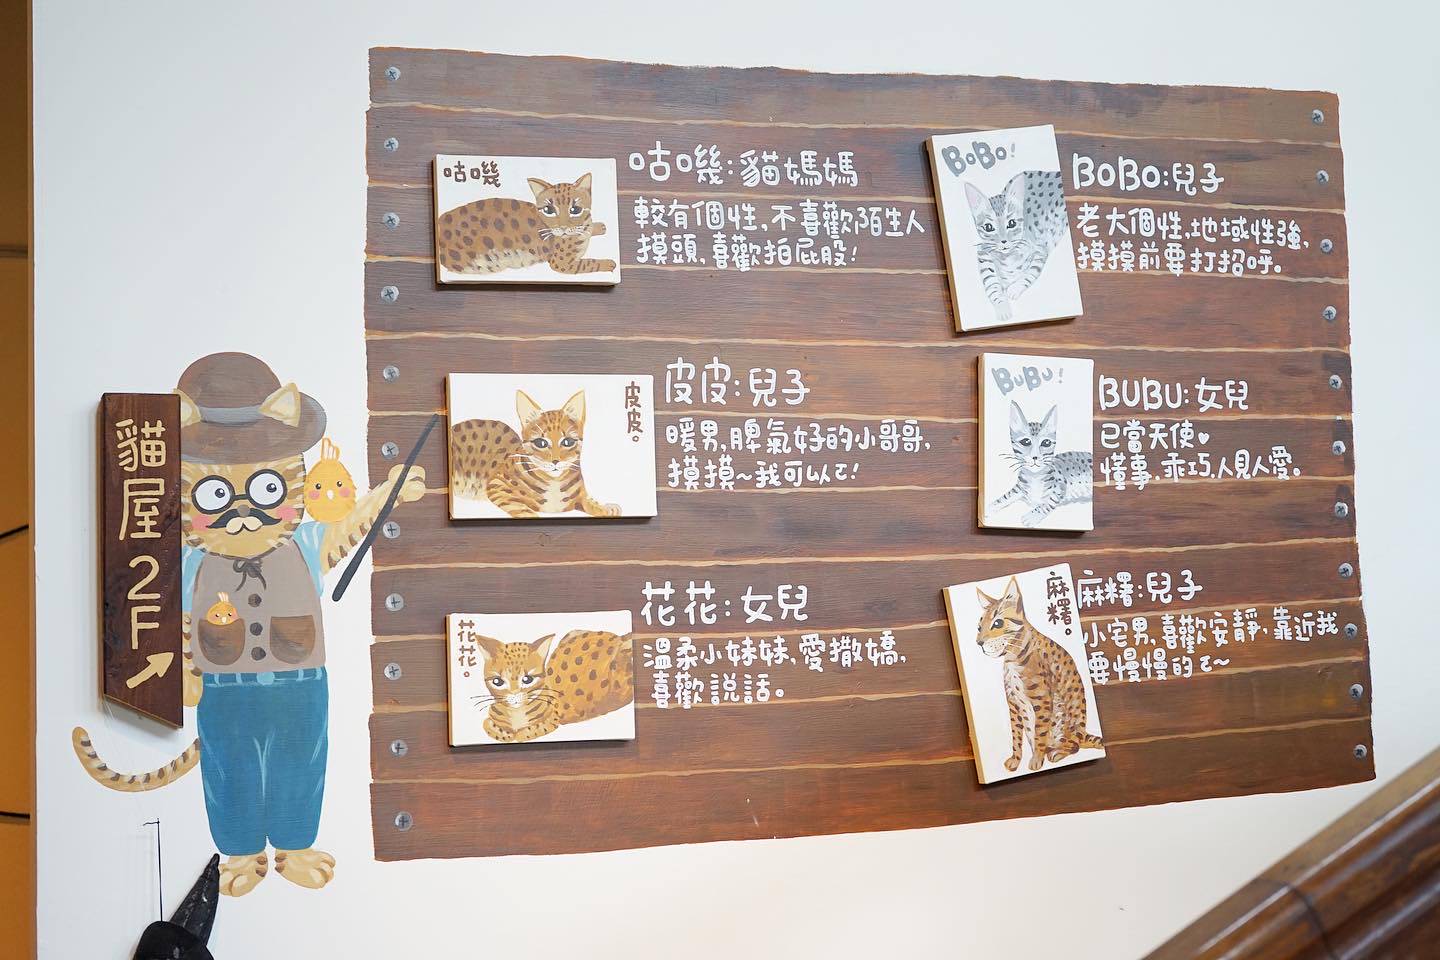 貓屋2F
咕嘰
咕嘰:貓媽媽
較有個性,不喜歡陌生人
摸頭,喜歡拍屁股!
BOBO!
BOBO:兒子
老大個性,地域性強,
摸摸前要打招呼。
皮皮。
皮皮:兒子
暖男,脾氣好的小哥哥,
摸摸~我可以ㄛ!
BUBU!
BUBU:女兒
已當天使♥
懂事,乖巧,人見人愛。
花花。
花花:女兒
溫柔小妹妹,愛撒嬌,
喜歡說話。
麻糬。
麻糬:兒子
小宅男,喜歡安靜,靠近我
要慢慢的ㄛ~